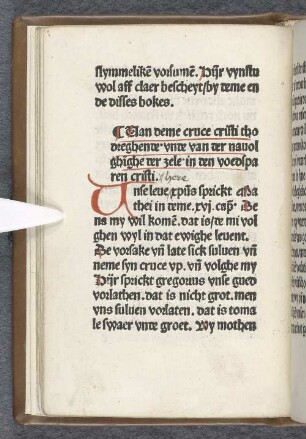 slymmelikē vorsumē. Hijr vynstu
wol aff claer bescheyt/by deme en
de disses bokes.
¶ Uan deme cruce cristi tho
dreghen/vnde van der nauol
ghinghe der zele in den voedspa
ren cristi.
Unse leue xpūs sprickt Ma
thei in deme. xvj. cap̄. De
na my wil komē. dat is/de mi vol
ghen wyl in dat ewighe leuent.
De vorsake vñ late sick suluen vñ
neme syn cruce vp. vñ volghe my
Hijr sprickt gregorius vnse gued
vorlathen. dat is nicht grot. men
vns suluen vorlaten. dat is toma
le swaer vnde groet. Wy mothen